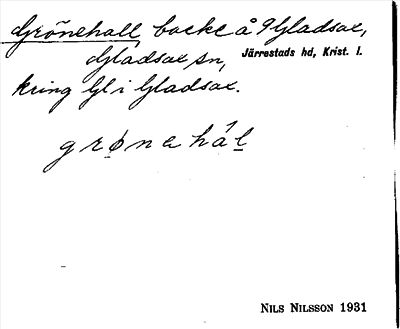 Grönehall, backe å 9 Gladsax,
Gladsax sn, Järrestads hd, Krist. l.
kring Gl i Gladsax.
grø̱nehál̲
NILS NILSSON 1931